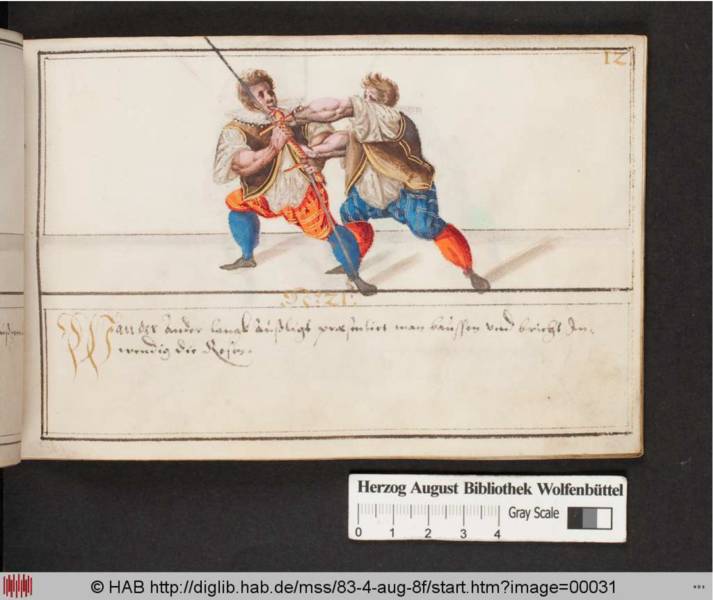 12
N: 21.
Wan der ander langk außligt præsentiert man baussen und bricht In-
wendig die Rosen.
Herzog August Bibliothek Wolfenbüttel
Gray Scale
0 1 2 3 4
© HAB http://diglib.hab.de/mss/83-4-aug-8f/start.htm?image=00031